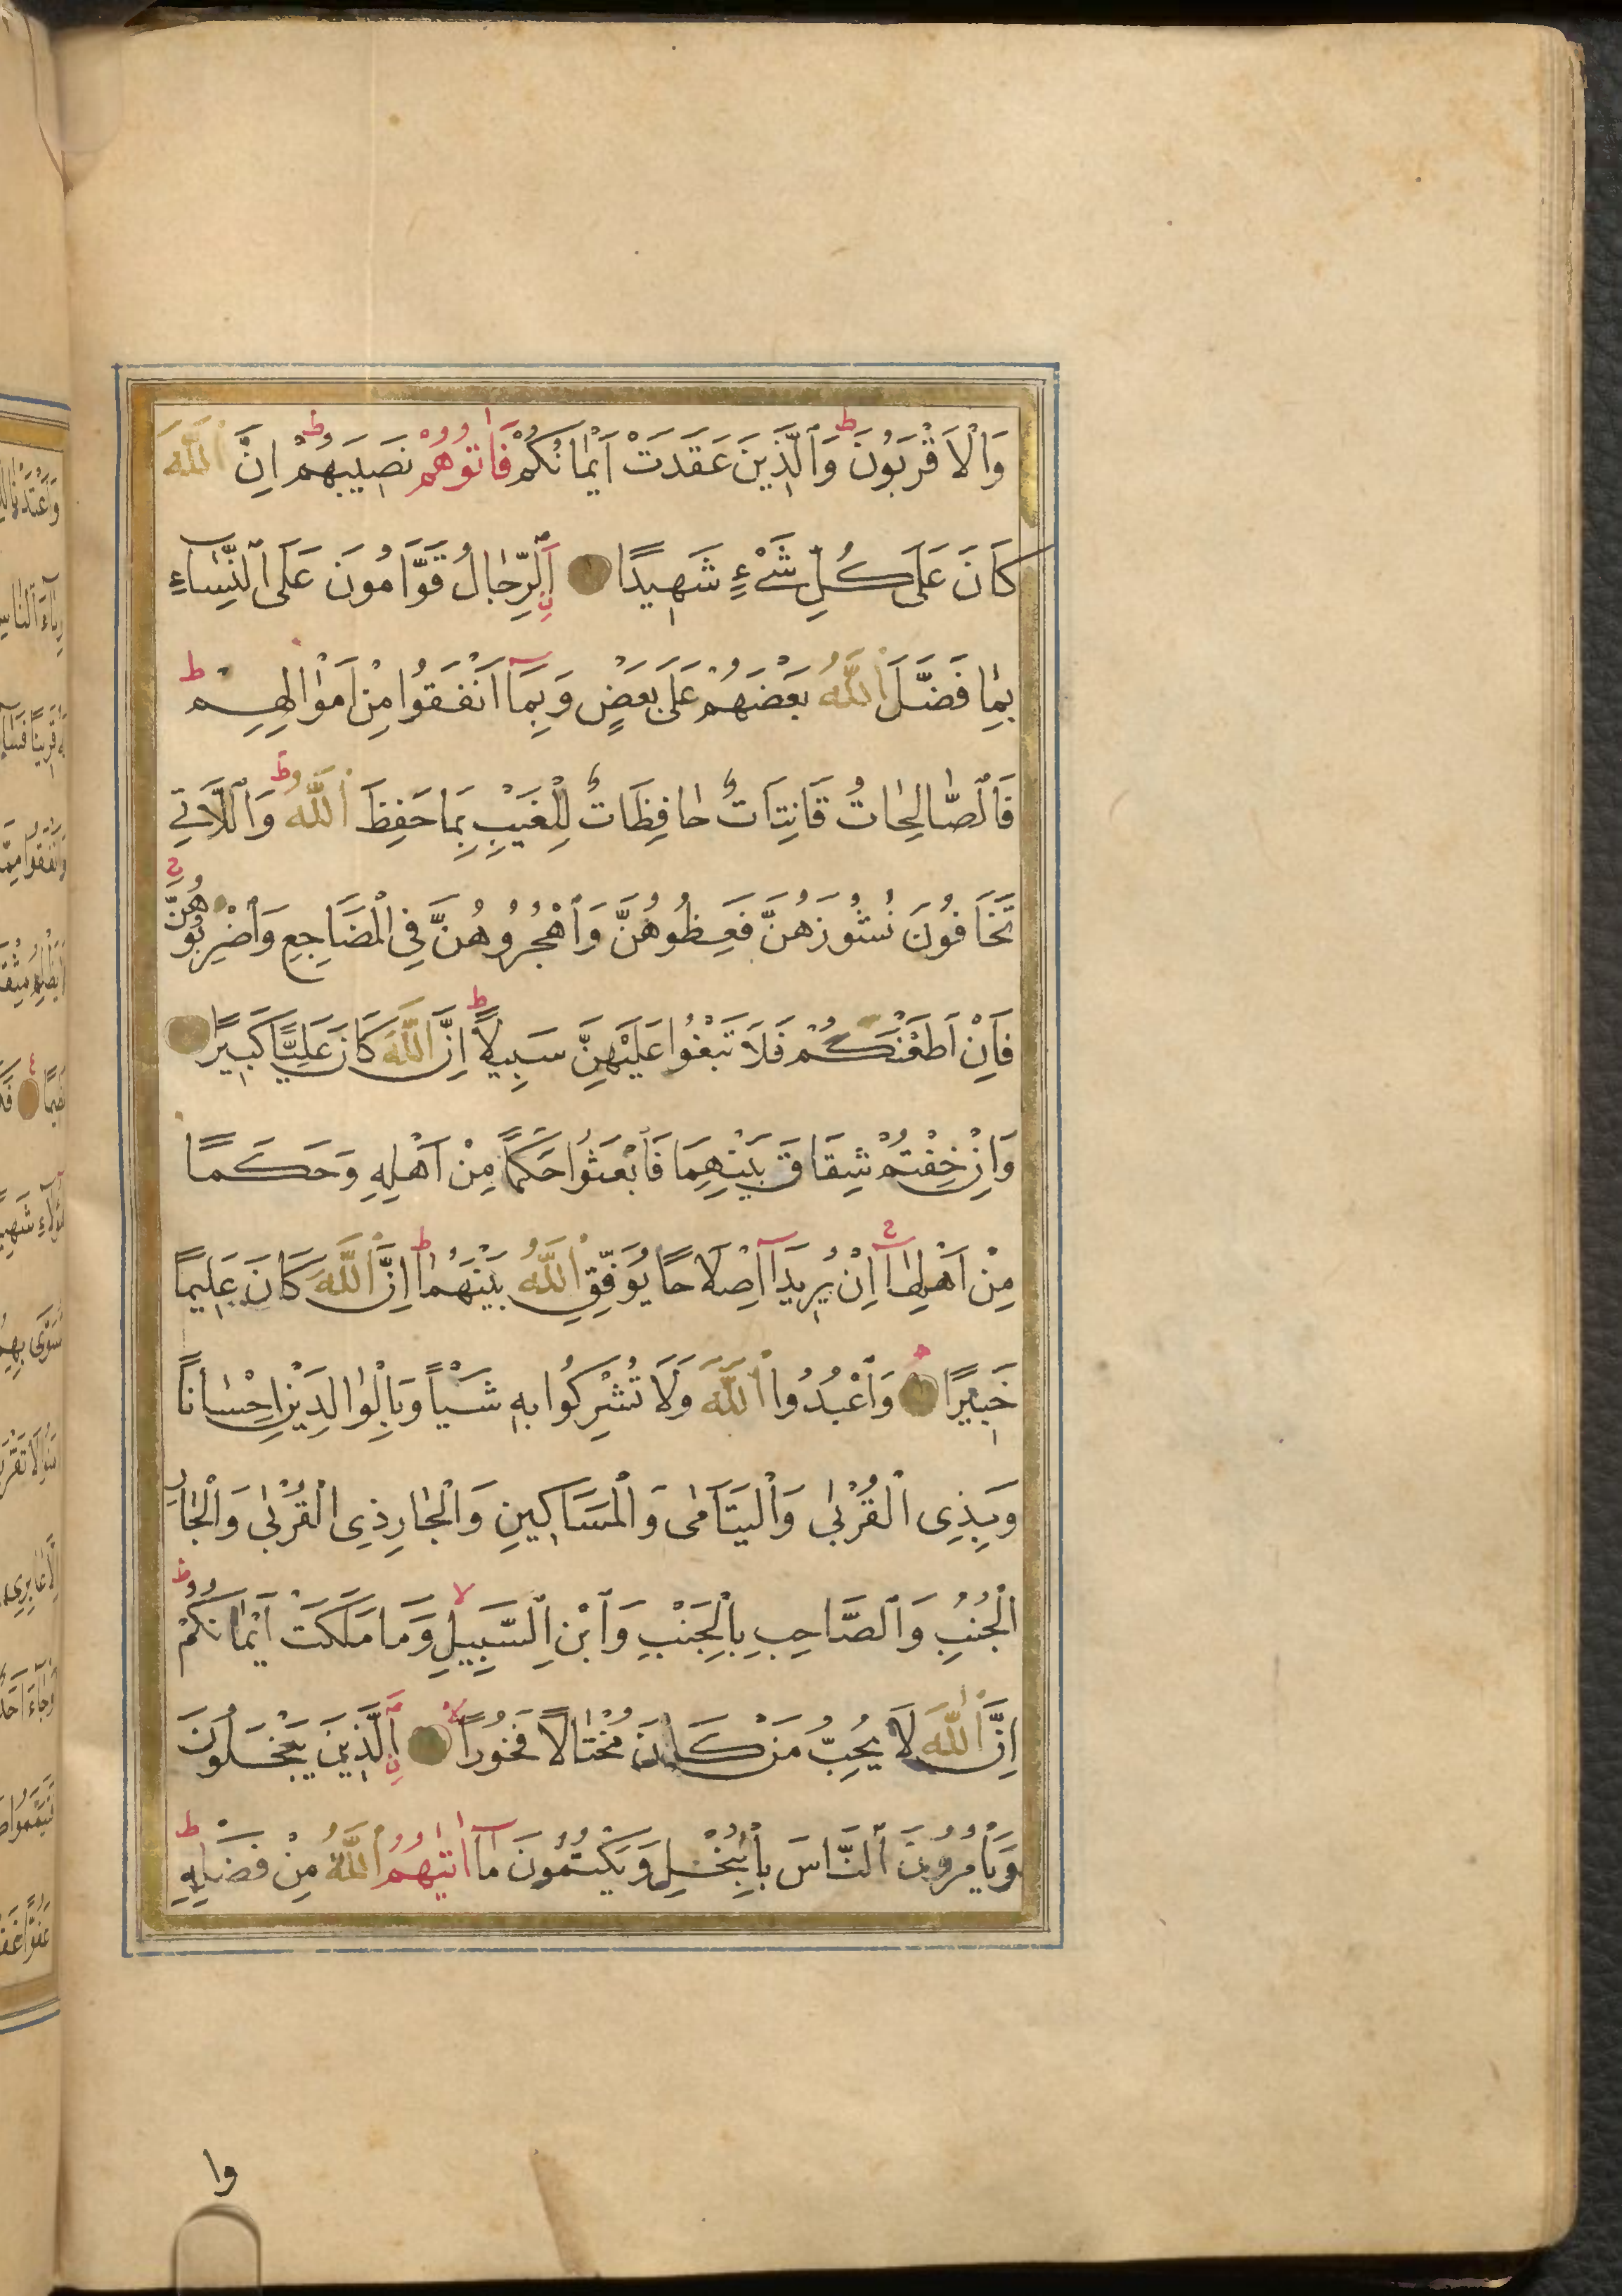 وَٱلْاَقْرَبُونَ ط وَٱلَّذٖينَ عَقَدَتْ اَيْمٰانُكُمْ فَاٰتُوهُمْ نَصٖيبَهُمْ ط اِنَّ ٱللّٰهَ
كَانَ عَلَى كُلِّ شَىْءٍ شَهٖيدًا اَلرِّجٰالُ قَوَّامُونَ عَلَى ٱلنِّسٰاءِ
بِمٰا فَضَّلَ ٱللّٰهُ بَعْضَهُمْ عَلَى بَعْضٍ وَبِمَآ اَنْفَقُوا مِنْ اَمْوٰالِهِمْ ط
فَٱلصّٰالِحٰاتُ قَانِتَاتٌ حٰافِظَاتٌ لِلْغَيْبِ بِمَا حَفِظَ ٱللّٰهُ ط وَٱللَّاتٖى
تَخَافُونَ نُشُوزَهُنَّ فَعِظُوهُنَّ وَٱهْجُرُوهُنَّ فِى ٱلْمَضَاجِعِ وَٱضْرِبُوهُنَّ ج
فَاِنْ اَطَعْنَكُمْ فَلَا تَبْغُوا عَلَيْهِنَّ سَبٖيلًا ط اِنَّ ٱللّٰهَ كَانَ عَلِيًّا كَبٖيرًا
وَاِنْ خِفْتُمْ شِقَاقَ بَيْنِهِمَا فَٱبْعَثُوا حَكَمًا مِنْ اَهْلِهٖ وَحَكَمًا
مِنْ اَهْلِهٰا ج اِنْ يُرٖيدَآ اِصْلَاحًا يُوَفِّقِ ٱللّٰهُ بَيْنَهُمٰا ط اِنَّ ٱللّٰهَ كَانَ عَلٖيمًا
خَبٖيرًا وَٱعْبُدُوا ٱللّٰهَ وَلَا تُشْرِكُوا بِهٖ شَيْـًٔا وَبِالْوٰالِدَيْنِ اِحْسٰانًا
وَبِذِى ٱلْقُرْبٰى وَٱلْيَتَامٰى وَٱلْمَسَاكٖينِ وَٱلْجٰارِ ذِى ٱلْقُرْبٰى وَٱلْجَارِ
ٱلْجُنُبِ وَٱلصَّاحِبِ بِٱلْجَنْبِ وَٱبْنِ ٱلسَّبٖيلِ لا وَمَا مَلَكَتْ اَيْمٰانُكُمْ ط
اِنَّ ٱللّٰهَ لَا يُحِبُّ مَنْ كَانَ مُخْتٰالًا فَخُورًا لا اَلَّذٖينَ يَبْخَلُونَ
وَيَأْمُرُونَ ٱلنَّاسَ بِٱلْبُخْلِ وَيَكْتُمُونَ مٰآ اٰتٰيهُمُ ٱللّٰهُ مِنْ فَضْلِهٖ ط
وا